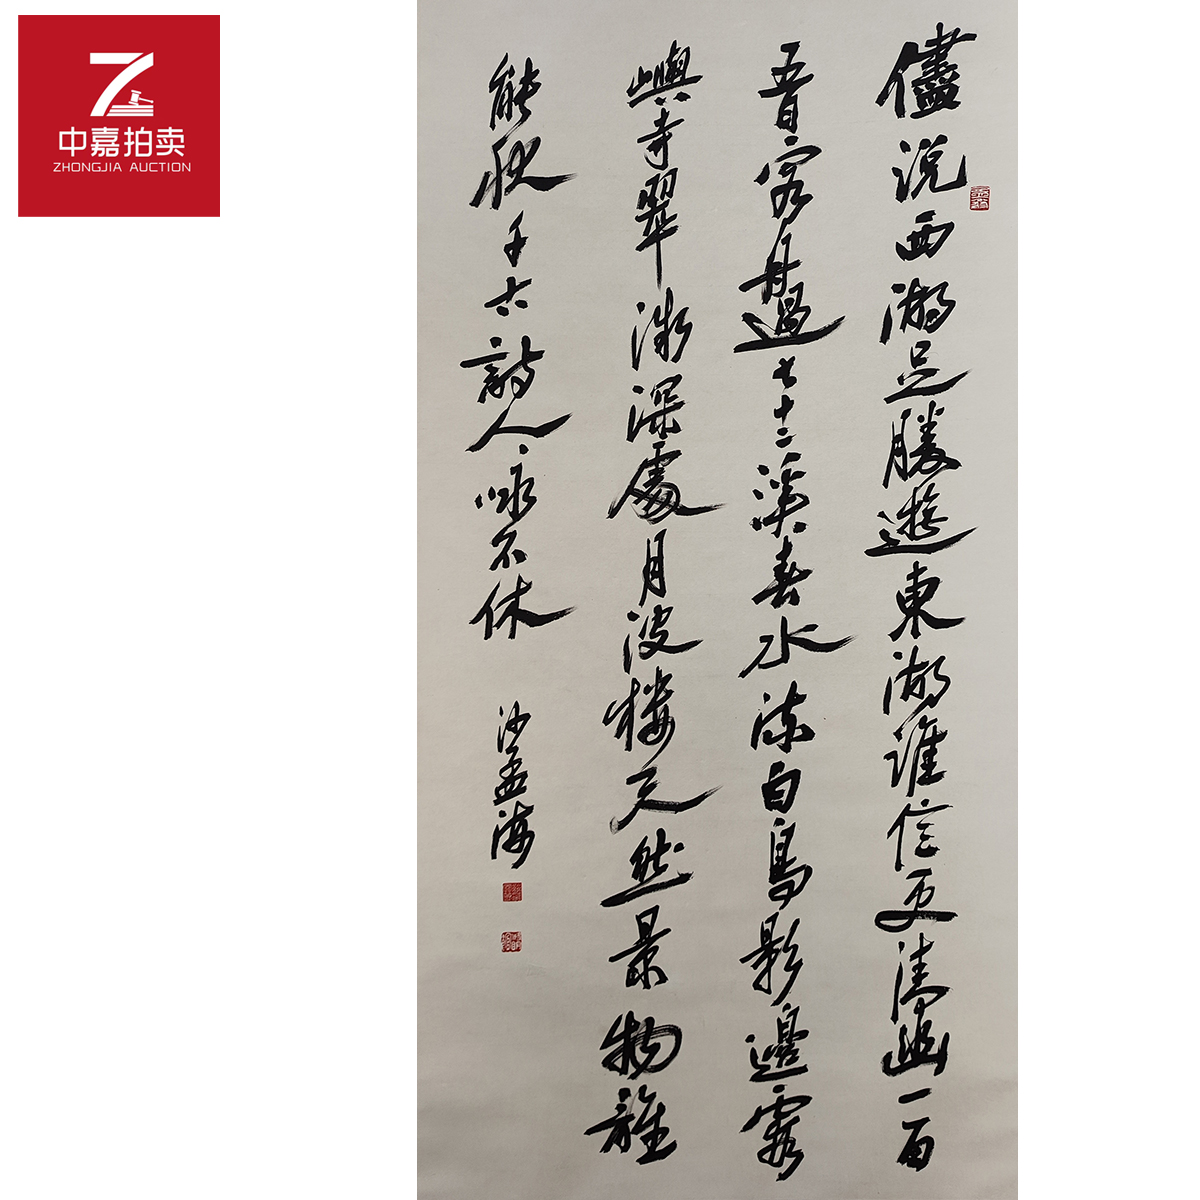 中嘉拍卖
ZHONGJIA AUCTION
儘说西湖足勝遊東湖誰信更清幽一百
五日客舟過七十二溪春水流白鳥影邊霞
嶼寺翠微深處月波樓天然景物誰
能狀千古詩人咏不休
沙孟海